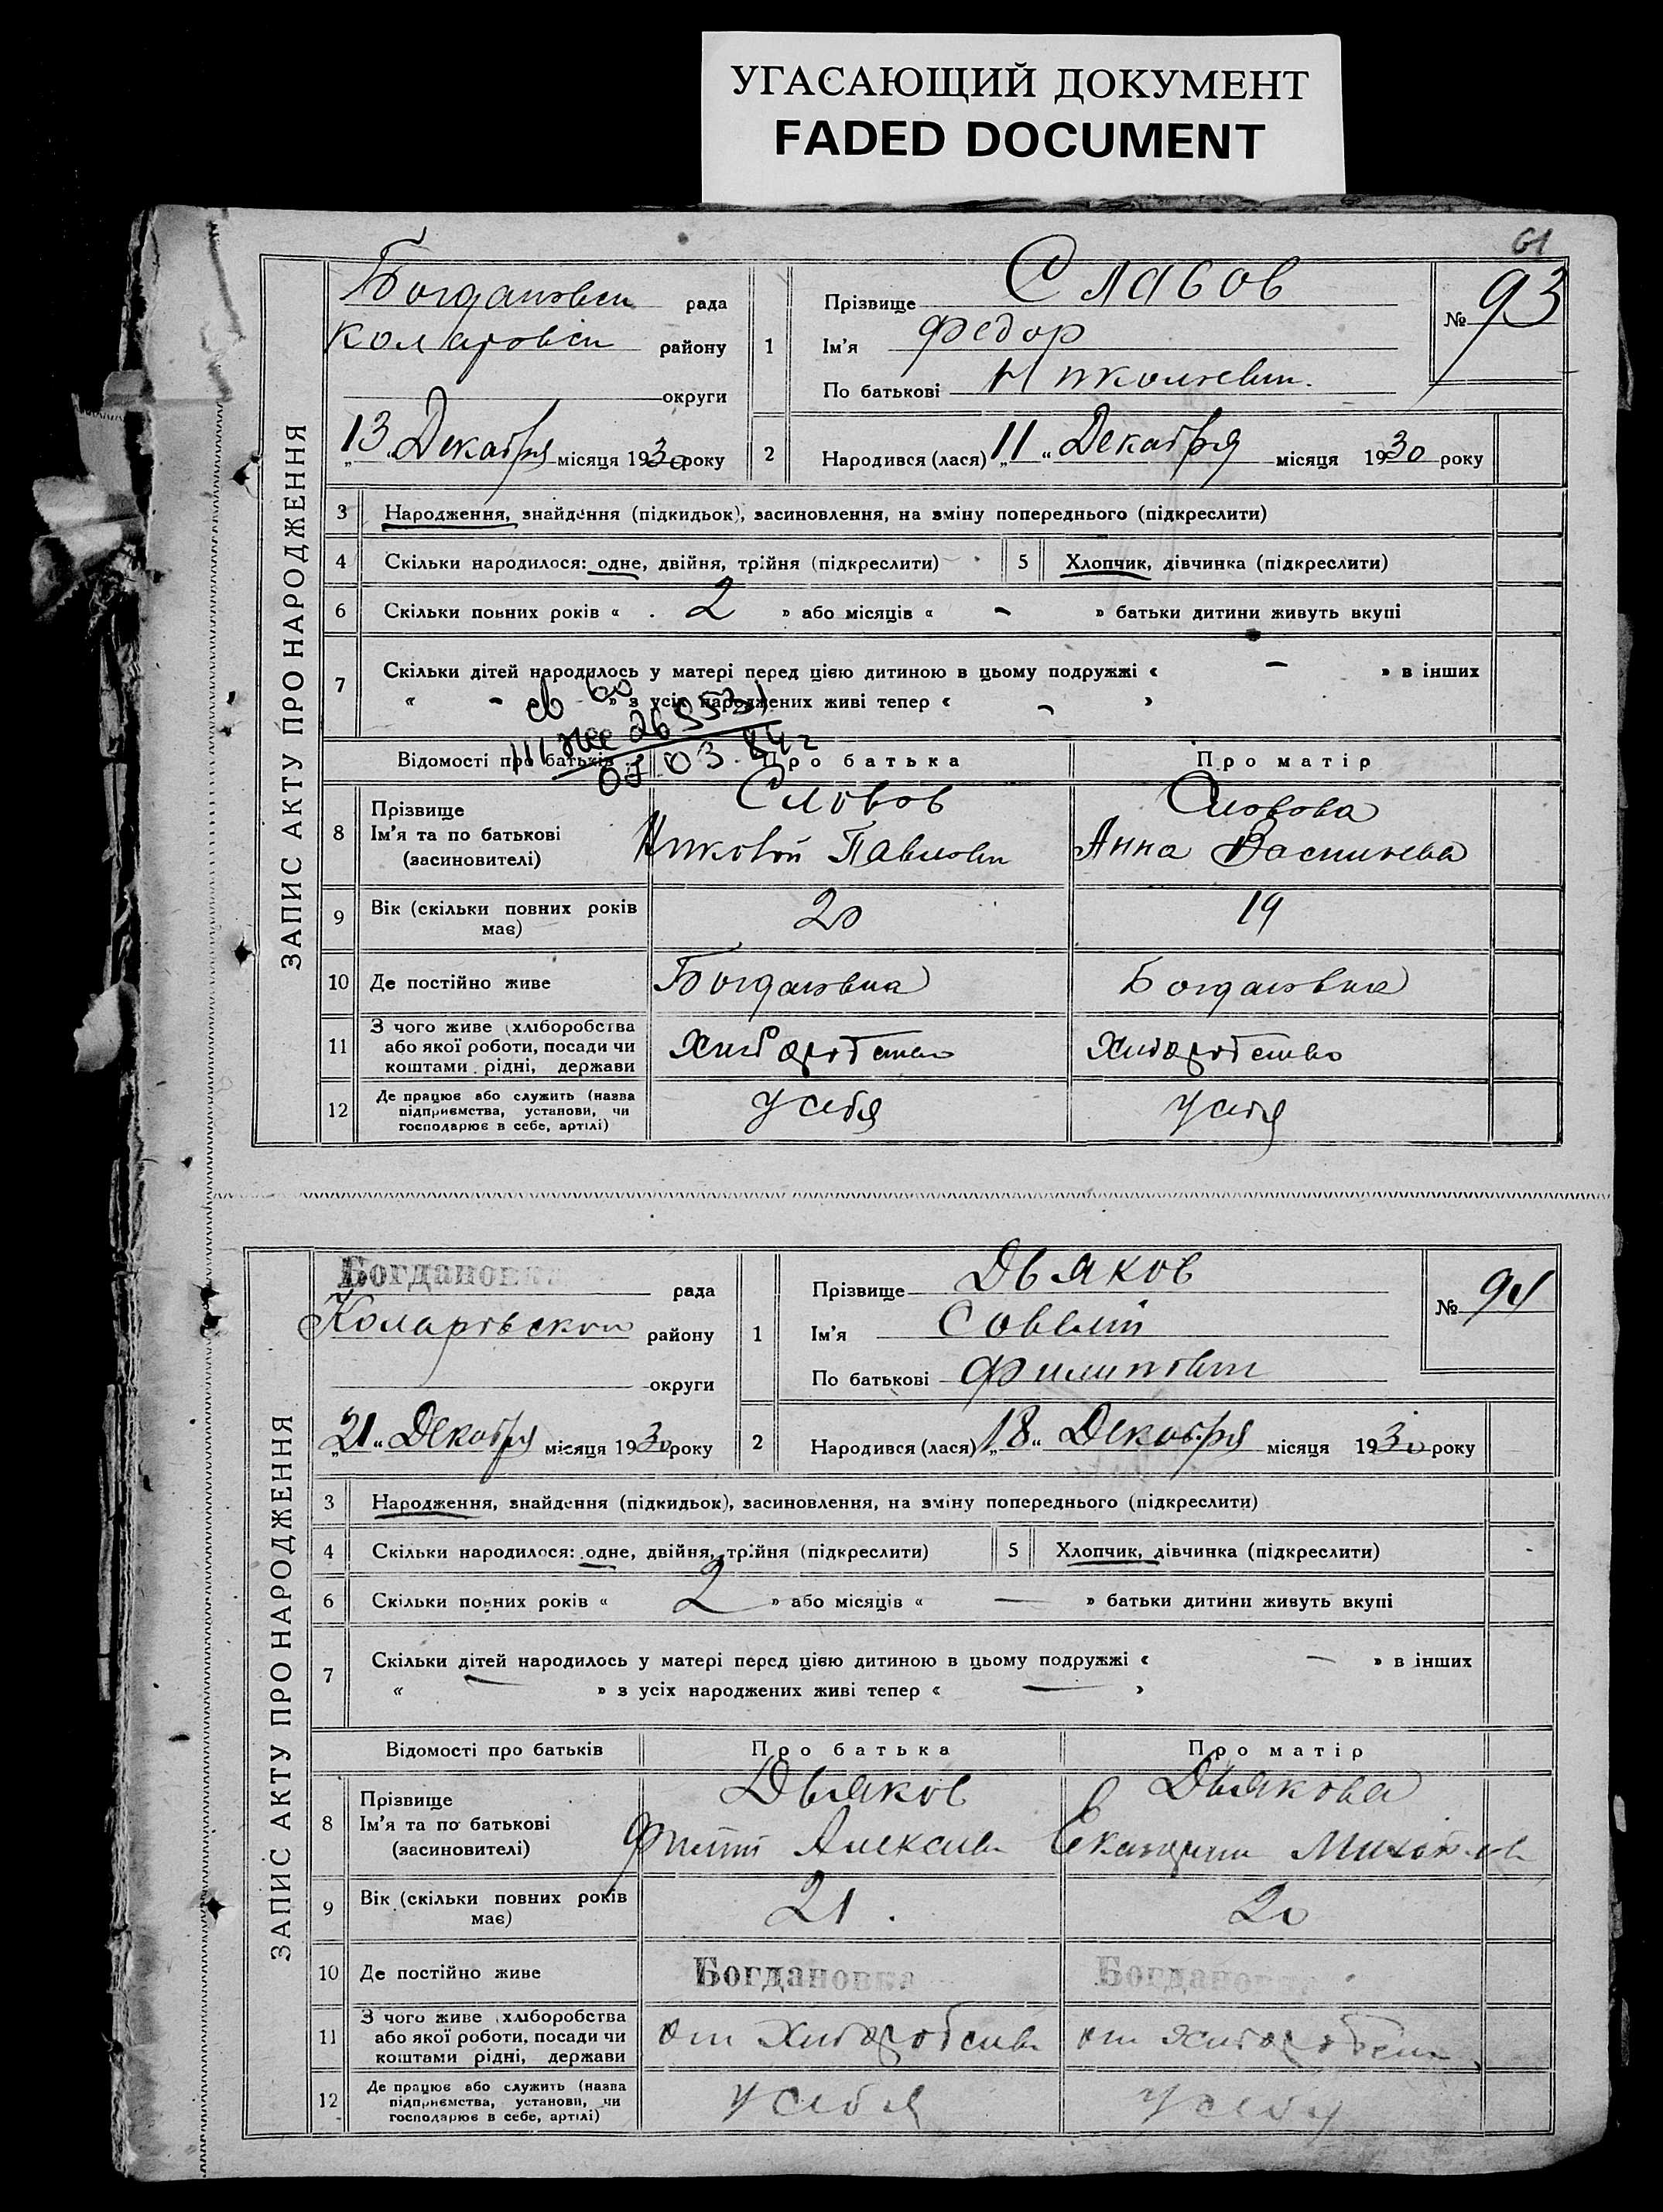 УГАСАЮЩИЙ ДОКУМЕНТ
FADED DOCUMENT
61
ЗАПИС АКТУ ПРО НАРОДЖЕННЯ
Богдановск рада
Коларовск району
округи
„13“ Декабря місяця 1930 року
1 Прізвище Славов
Ім'я Федор
По батькові Николаевич.
№ 93
2 Народився (лася) „11“ Декабря місяця 1930 року
3 Народження, знайдення (підкидьок), засиновлення, на зміну попереднього (підкреслити)
4 Скільки народилося: одне, двійня, трійня (підкреслити) 5 Хлопчик, дівчинка (підкреслити)
6 Скільки повних років « 2 » або місяців « - » батьки дитини живуть вкупі
7 Скільки дітей народилось у матері перед цією дитиною в цьому подружжі « - » в інших
« - » з усіх народжених живі тепер « - »
Відомості про батьків Про батька Про матір
8 Прізвище
Ім'я та по батькові
(засновителі)
Словов Словова
Николай Павлович Анна Васильева
9 Вік (скільки повних років має) 20 19
10 Де постійно живе Богдановка Богдановка
11 З чого живе (хліборобства
або якої роботи, посади чи
коштами рідні, держави
Хлиборобство Хлиборобство
12 Де працює або служить (назва
підприємства, установи, чи
господарює в себе, артілі)
У себя У себя
ЗАПИС АКТУ ПРО НАРОДЖЕННЯ
Богдановка рада
Коларовского району
округи
„21“ Декабря місяця 1930 року
1 Прізвище Дьяков
Ім'я
По батькові Филипович
№ 94
2 Народився (лася) „18“ Декабря місяця 1930 року
3 Народження, знайдення (підкидьок), засиновлення, на зміну попереднього (підкреслити)
4 Скільки народилося: одне, двійня, трійня (підкреслити) 5 Хлопчик, дівчинка (підкреслити)
6 Скільки повних років « 2 » або місяців « — » батьки дитини живуть вкупі
7 Скільки дітей народилось у матері перед цією дитиною в цьому подружжі « — » в інших
« — » з усіх народжених живі тепер « — »
Відомості про батьків Про батька Про матір
8 Прізвище
Ім'я та по батькові
(засиновителі)
Дьяков Дьякова
Филип Алексеев Екатерина Михайлов
9 Вік (скільки повних років має) 21. 20
10 Де постійно живе Богдановка Богдановка
11 З чого живе (хліборобства
або якої роботи, посади чи
коштами рідні, держави
от Хлиборобства от Хлиборобства
12 Де працює або служить (назва
підприємства, установи, чи
господарює в себе, артілі)
У себя У себя